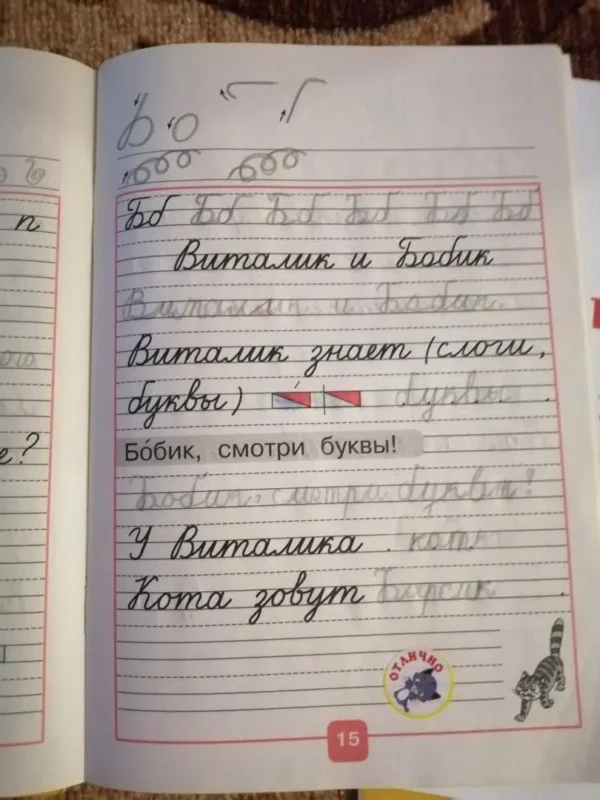 п
е?
Бб Бб Бб Бб Бб Бб
Виталик и Бобик
Виталик и Бобик.
Виталик знает (слоги,
буквы) буквы .
Бо́бик, смотри буквы!
Бобик, смотри буквы!
У Виталика . кот
Кота зовут Барсик .
ОТЛИЧНО
15